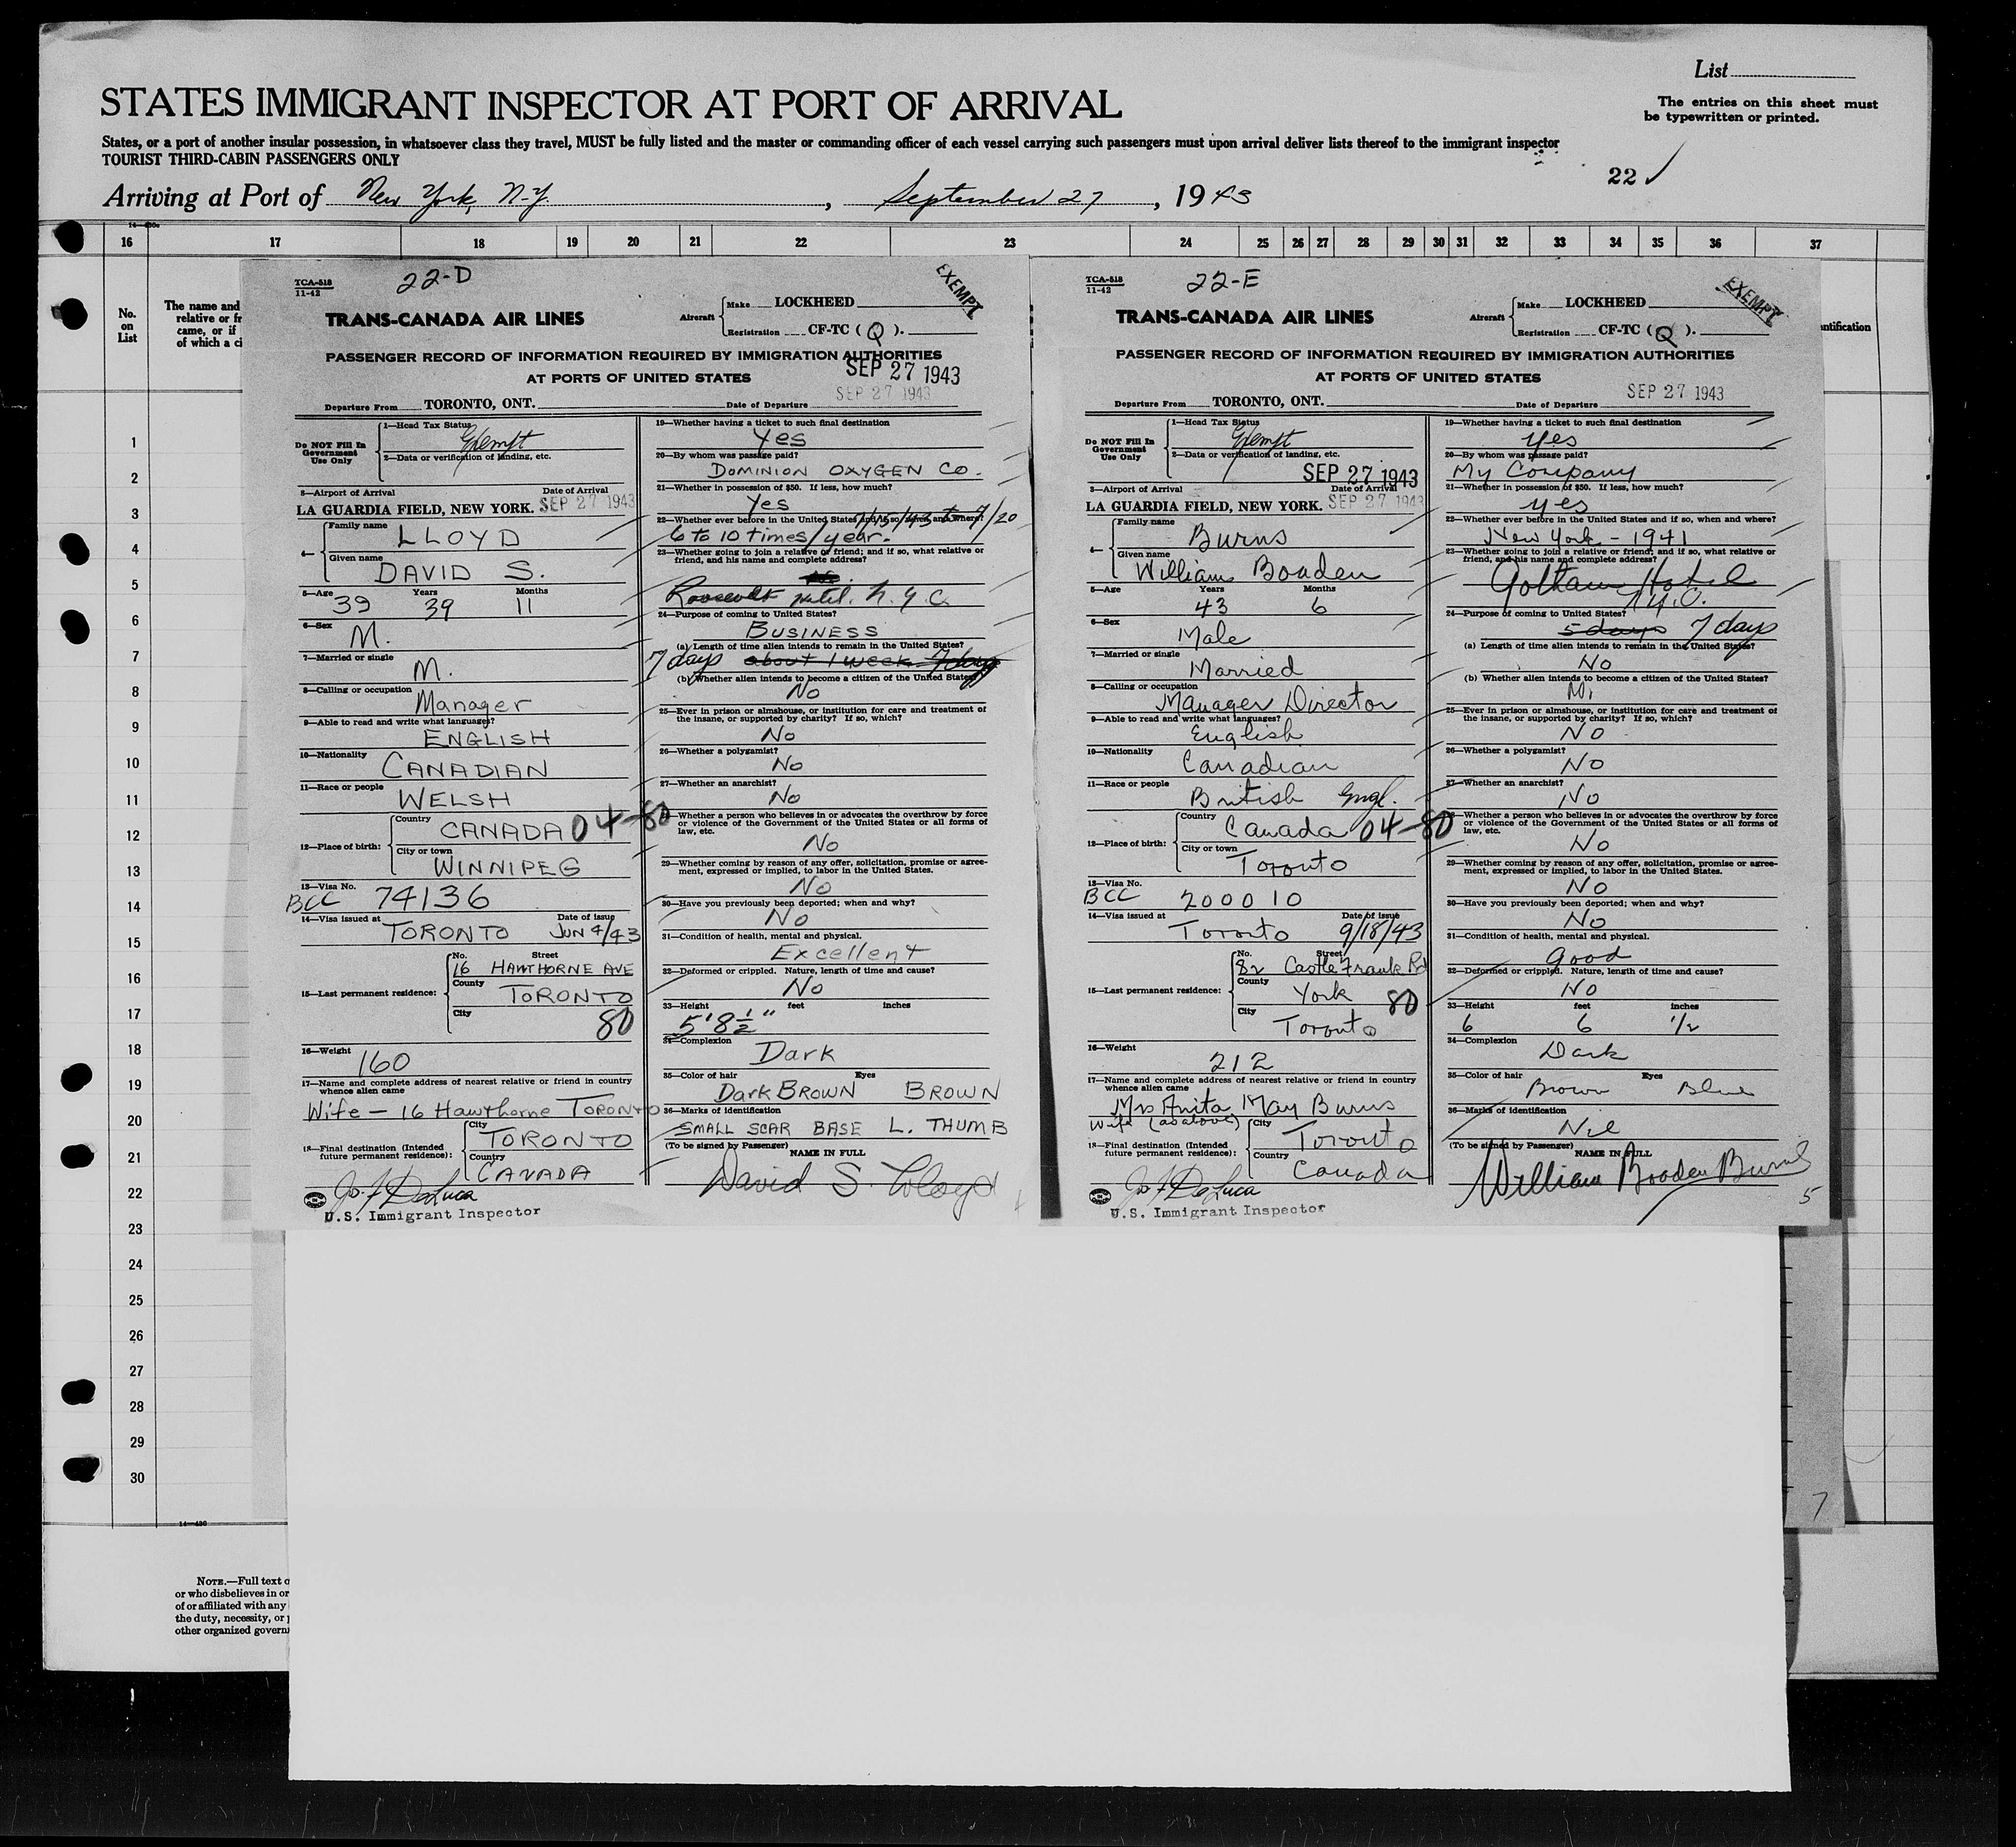 List
STATES IMMIGRANT INSPECTOR AT PORT OF ARRIVAL
The entries on this sheet must
be typewritten or printed.
States, or a port of another insular possession, in whatsoever class they travel, MUST be fully listed and the master or commanding officer of each vessel carrying such passengers must upon arrival deliver lists thereof to the immigrant inspector
TOURIST THIRD-CABIN PASSENGERS ONLY
22 ✓
Arriving at Port of New York, N.Y., September 27, 1943
16 17 18 19 20 21 22 23 24 25 26 27 28 29 30 31 32 33 34 35 36 37
No.
on
List
The name and
relative or fr
came, or if
of which a ci
ntification
1
2
3
4
5
6
7
8
9
10
11
12
13
14
15
16
17
18
19
20
21
22
23
24
25
26
27
28
29
30
TCA-518
11-42
22-D
EXEMPT
TRANS-CANADA AIR LINES
Aircraft
Make LOCKHEED
Registration CF-TC (Q).
PASSENGER RECORD OF INFORMATION REQUIRED BY IMMIGRATION AUTHORITIES
AT PORTS OF UNITED STATES
SEP 27 1943
SEP 27 1943
Departure From TORONTO, ONT. Date of Departure
Do NOT Fill In
Government
Use Only
1—Head Tax Status
Exempt
2—Data or verification of landing, etc.
3—Airport of Arrival Date of Arrival
LA GUARDIA FIELD, NEW YORK. SEP 27 1943
4—
Family name
LLOYD
Given name
DAVID S.
5—Age Years Months
39 39 11
6—Sex
M.
7—Married or single
M.
8—Calling or occupation
Manager
9—Able to read and write what languages?
ENGLISH
10—Nationality
CANADIAN
11—Race or people
WELSH
12—Place of birth:
Country
CANADA 04-80
City or town
WINNIPEG
13—Visa No.
BCC 74136
14—Visa issued at Date of issue
TORONTO JUN 4/43
15—Last permanent residence:
No. Street
16 HAWTHORNE AVE
County
TORONTO
City
80
16—Weight
160
17—Name and complete address of nearest relative or friend in country
whence alien came
Wife — 16 Hawthorne TORONTO
18—Final destination (Intended
future permanent residence):
City
TORONTO
Country
CANADA
Jo. F. DeLuca
U.S. Immigrant Inspector
19—Whether having a ticket to such final destination
Yes
20—By whom was passage paid?
DOMINION OXYGEN CO.
21—Whether in possession of $50. If less, how much?
Yes
22—Whether ever before in the United States and if so, when and where?
7/15/43 to 7/20
6 to 10 times/year.
23—Whether going to join a relative or friend; and if so, what relative or
friend, and his name and complete address?
Roosevelt Hotel. N.Y.C.
24—Purpose of coming to United States?
BUSINESS
(a) Length of time alien intends to remain in the United States?
7 days about 1 week 7 days
(b) Whether alien intends to become a citizen of the United States?
No
25—Ever in prison or almshouse, or institution for care and treatment of
the insane, or supported by charity? If so, which?
No
26—Whether a polygamist?
No
27—Whether an anarchist?
No
28—Whether a person who believes in or advocates the overthrow by force
or violence of the Government of the United States or all forms of
law, etc.
No
29—Whether coming by reason of any offer, solicitation, promise or agree-
ment, expressed or implied, to labor in the United States.
No
30—Have you previously been deported; when and why?
No
31—Condition of health, mental and physical.
Excellent
32—Deformed or crippled. Nature, length of time and cause?
No
33—Height feet inches
5' 8 1/2"
34—Complexion
Dark
35—Color of hair Eyes
Dark BROWN BROWN
36—Marks of identification
SMALL SCAR BASE L. THUMB
(To be signed by Passenger)
NAME IN FULL
David S. Lloyd
TCA-518
11-42
22-E
EXEMPT
TRANS-CANADA AIR LINES
Aircraft
Make LOCKHEED
Registration CF-TC (Q).
PASSENGER RECORD OF INFORMATION REQUIRED BY IMMIGRATION AUTHORITIES
AT PORTS OF UNITED STATES
SEP 27 1943
Departure From TORONTO, ONT. Date of Departure
Do NOT Fill In
Government
Use Only
1—Head Tax Status
Exempt
2—Data or verification of landing, etc.
SEP 27 1943
3—Airport of Arrival Date of Arrival
LA GUARDIA FIELD, NEW YORK. SEP 27 1943
4—
Family name
Burns
Given name
William Boaden
5—Age Years Months
43 6
6—Sex
Male
7—Married or single
Married
8—Calling or occupation
Manager Director
9—Able to read and write what languages?
English
10—Nationality
Canadian
11—Race or people
British Engl.
12—Place of birth:
Country
Canada 04-80
City or town
Toronto
13—Visa No.
BCC 200010
14—Visa issued at Date of issue
Toronto 9/18/43
15—Last permanent residence:
No. Street
82 Castle Frank Rd
County
York 80
City
Toronto
16—Weight
212
17—Name and complete address of nearest relative or friend in country
whence alien came
Mrs Anita May Burns
wife (as above)
18—Final destination (Intended
future permanent residence):
City
Toronto
Country
Canada
Jo. F. DeLuca
U.S. Immigrant Inspector
19—Whether having a ticket to such final destination
Yes
20—By whom was passage paid?
My Company
21—Whether in possession of $50. If less, how much?
yes
22—Whether ever before in the United States and if so, when and where?
New York - 1941
23—Whether going to join a relative or friend; and if so, what relative or
friend, and his name and complete address?
Gotham Hotel
N.Y.C.
24—Purpose of coming to United States?
5 days 7 days
(a) Length of time alien intends to remain in the United States?
No
(b) Whether alien intends to become a citizen of the United States?
25—Ever in prison or almshouse, or institution for care and treatment of
the insane, or supported by charity? If so, which?
No
26—Whether a polygamist?
No
27—Whether an anarchist?
No
28—Whether a person who believes in or advocates the overthrow by force
or violence of the Government of the United States or all forms of
law, etc.
No
29—Whether coming by reason of any offer, solicitation, promise or agree-
ment, expressed or implied, to labor in the United States.
No
30—Have you previously been deported; when and why?
No
31—Condition of health, mental and physical.
Good
32—Deformed or crippled. Nature, length of time and cause?
No
33—Height feet inches
6 6 1/2
34—Complexion
Dark
35—Color of hair Eyes
Brown Blue
36—Marks of identification
Nil
(To be signed by Passenger)
NAME IN FULL
William Boaden Burns
5
7
14—430
NOTE.—Full text o
or who disbelieves in or
of or affiliated with any
the duty, necessity, or p
other organized governm